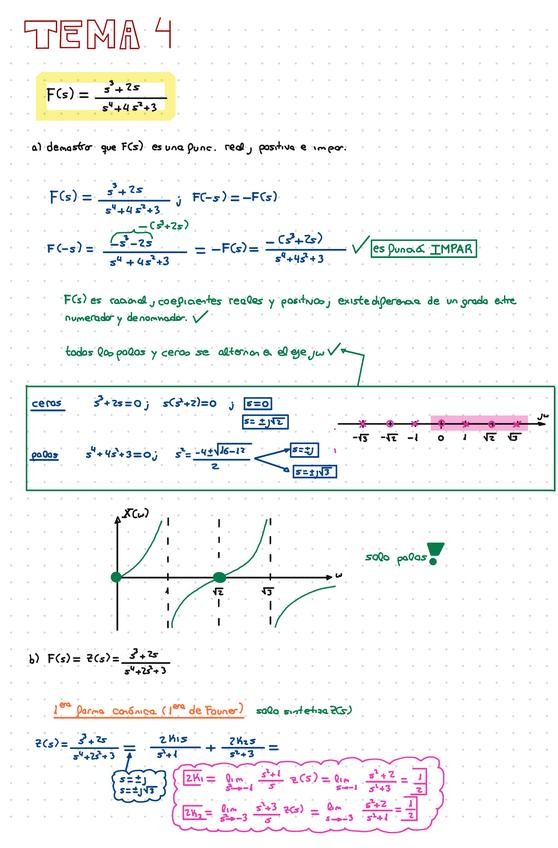 TEMA 4
F(s) = (s³+2s)/(s⁴+4s²+3)
a) demostrar que F(s) es una func. real, positiva e impar.
F(s) = (s³+2s)/(s⁴+4s²+3) ; F(-s) = -F(s)
-(s³+2s)
F(-s) = (-s³-2s)/(s⁴+4s²+3) = -F(s) = -(s³+2s)/(s⁴+4s²+3) ✓ es función IMPAR
F(s) es racional, coeficientes reales y positivos, existe diferencia de un grado entre
numerador y denominador. ✓
todos los polos y ceros se alternan en el eje jω ✓
ceros s³+2s=0 ; s(s²+2)=0 ; s=0
s=±j√2
jω
-√3 -√2 -1 0 1 √2 √3
polos s⁴+4s²+3=0 ; s² = (-4±√16-12)/2 s=±j
s=±j√3
X(ω)
solo polos!
ω
1 √2 √3
b) F(s) = Z(s) = (s³+2s)/(s⁴+2s²+3)
1era forma canónica (1era de Foster) solo sintetiza Z(s)
Z(s) = (s³+2s)/(s⁴+2s²+3) = 2K₁s/(s²+1) + 2K₂s/(s²+3) =
s=±j
s=±j√3
2K₁ = lim s²→-1 (s²+1)/s Z(s) = lim s→-1 (s²+2)/(s²+3) = 1/2
2K₂ = lim s²→-3 (s²+3)/s Z(s) = lim s→-3 (s²+2)/(s²+1) = 1/2